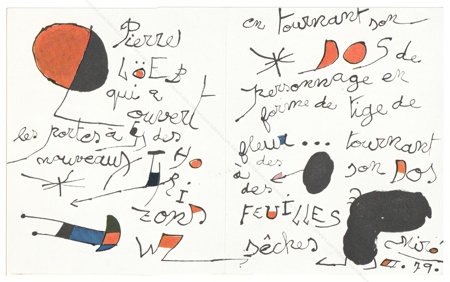 Pierre
LöEb
qui a
ouvert
les portes à des
nouveaux
HO
RI
ZONS
en tournant son
DOS de
personnage en
forme de tige de
fleur ... tournant
des son DOS
à
des
FEUILLES
sêches
Miró
79.